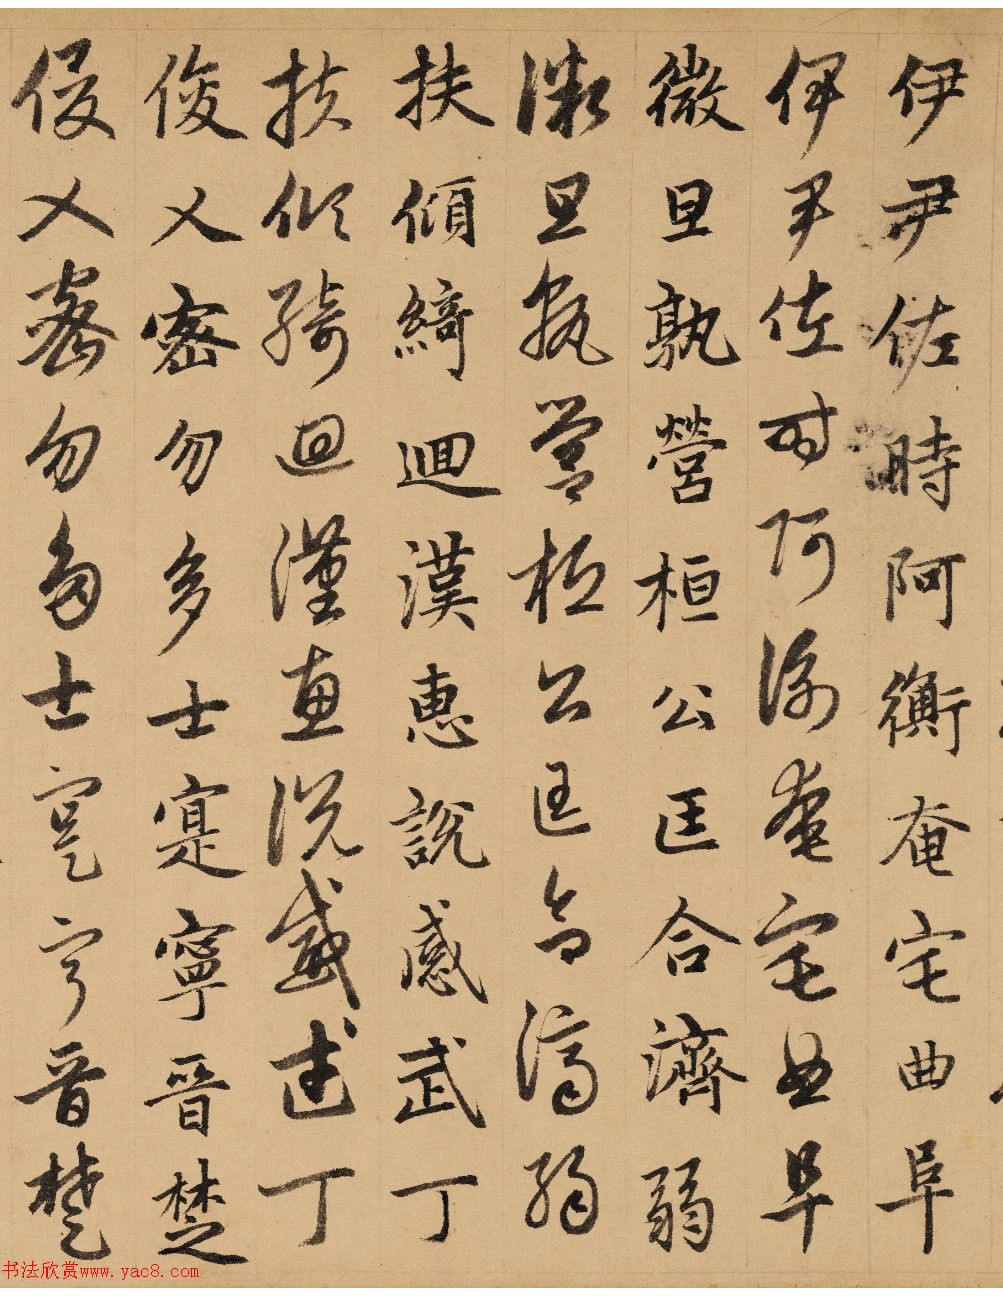 伊尹佐時阿衡奄宅曲阜
伊尹佐时阿衡奄宅曲阜
微旦孰營桓公匡合濟弱
微旦孰營桓公匡合濟弱
扶傾綺迴漢惠說感武丁
扶傾綺迴漢惠說感武丁
俊乂密勿多士寔寧晉楚
俊乂密勿多士寔寧晉楚
书法欣赏www.yac8.com